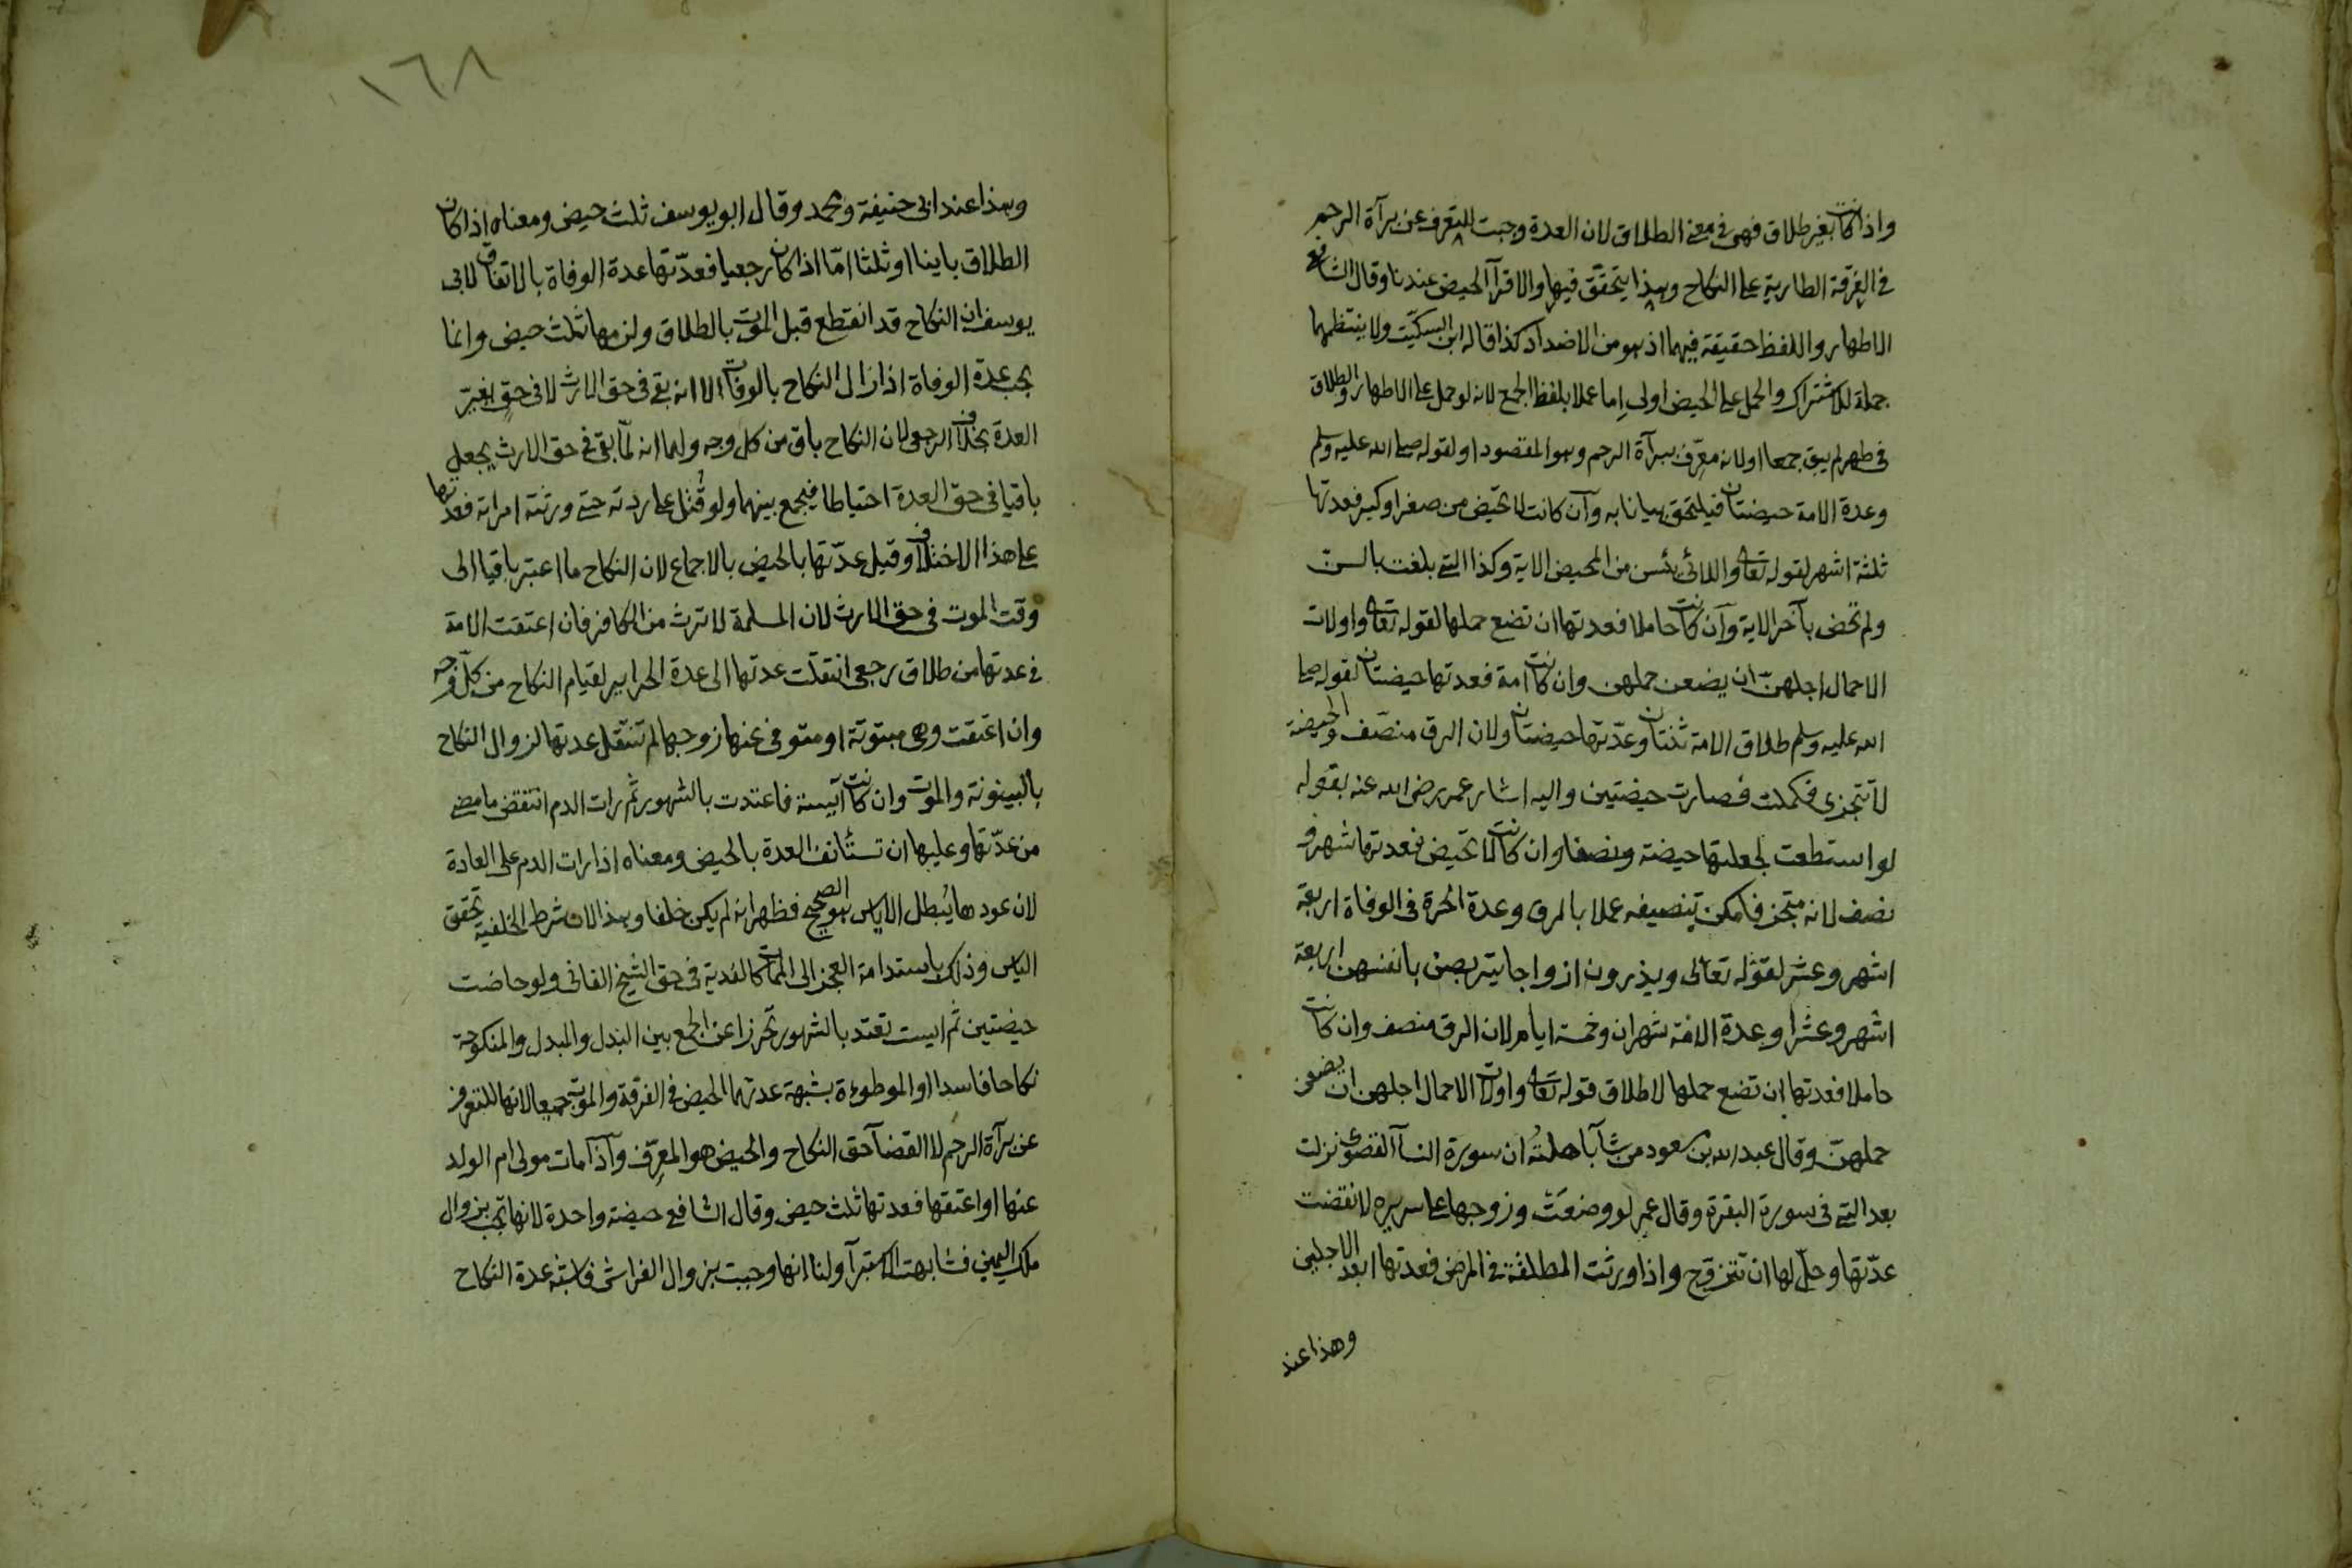 واذا كانت بغير طلاق فهى فى معنى الطلاق لان العدة وجبت للتعرف عن برآة الرحم
فى الفرقة الطارية على النكاح وهذا يتحقق فيها والاقرآ الحيض عندنا وقال الشافعى
الاطهار واللفظ حقيقة فيهما اذ هو من الاضداد كذا قاله ابن السكيت ولا ينتظمهما
جملة للاشتراك والحمل على الحيض اولى اما عملا بلفظ الجمع لانه لو حمل على الاطهار والطلاق
فى طهر لم يبق جمعا او لانه معرف ببرآة الرحم وهو المقصود او لقوله صلى الله عليه وسلم
وعدة الامة حيضتان فيلتحق بيانا به وآن كانت لا تحيض من صغر او كبر فعدتها
ثلثة اشهر لقوله تعالى واللائى يئسن من المحيض الاية وكذا التى بلغت بالسن
ولم تحض بآخر الاية وآن كانت حاملا فعدتها ان تضع حملها لقوله تعالى واولات
الاحمال اجلهنّ ان يضعن حملهن وان كانت امة فعدتها حيضتان لقوله صلى
الله عليه وسلم طلاق الامة ثنتان وعدّتها حيضتان ولان الرق منصّف والحيضة
لا تتجزى فكملت فصارت حيضتين واليه اشار عمر رضى الله عنه بقوله
لو استطعت لجعلتها حيضة ونصفا وان كانت لا تحيض فعدتها شهر و
نصف لانه متجز فامكن تنصيفه عملا بالرق وعدة الحرة فى الوفاة اربعة
اشهر وعشر لقوله تعالى ويذرون ازواجا يتربصن بانفسهن اربعة
اشهر وعشرا وعدة الامة شهران وخمسة ايام لان الرق منصف وان كانت
حاملا فعدتها ان تضع حملها لاطلاق قوله تعالى واولات الاحمال اجلهن ان يضعن
حملهنّ وقال عبد الله بن مسعود من شآ باهلتُه ان سورة النسآ القصوى نزلت
بعد التى فى سورة البقرة وقال عمر لو وضعَت وزوجها على سريره لانقضت
عدّتها وحلّ لها ان تتزوّج واذا ورثت المطلقة فى المرض فعدتها ابعد الاجلين
وهذا عند
١٦٨
وهذا عند ابى حنيفة ومحمد وقال ابو يوسف ثلث حيض ومعناه اذا كان
الطلاق باينا او ثلثا امّا اذا كان رجعيا فعدّتها عدة الوفاة بالاتفاق لابى
يوسف ان النكاح قد انقطع قبل الموت بالطلاق ولزمها ثلث حيض وانما
يجب عدة الوفاة اذا زال النكاح بالوفات الا انه بقى فى حق الارث لا فى حق تغير
العدة بخلاف الرجعى لان النكاح باق من كل وجه ولهما انه لمّا بقى فى حق الارث يجعل
باقيا فى حق العدة احتياطا فيجمع بينهما ولو قُتل على ردته حتى ورثته امراته فعدتها
على هذا الاختلاف وقيل عدّتها بالحيض بالاجماع لان النكاح ما اعتبر باقيا الى
وقت الموت فى حق الارث لان المسلمة لا ترث من الكافر فان اعتقت الامة
فى عدتها من طلاق رجعى انتقلت عدتها الى عدة الحراير لقيام النكاح من كلّ وجه
وان اعتقت وهى مبتوتة او متوفى عنها زوجها لم تنتقل عدتها لزوال النكاح
بالبينونة والموت وان كانت آيسة فاعتدت بالشهور ثم رات الدم انتقض ما مضى
من عدّتها وعليها ان تستأنف العدة بالحيض ومعناه اذا رات الدم على العادة
لان عودها يُبطل الاياس هو الصحيح فظهر انه لم يكن خلفا وهذا لان شرط الخلفية تحقق
الياس وذلك باستدامة العجز الى الممات كالفدية فى حق الشيخ الفانى ولو حاضت
حيضتين ثم ايست تعتد بالشهور تحرزا عن الجمع بين البدل والمبدل والمنكوحة
نكاحا فاسدا او الموطوءة بشبهة عدتهما الحيض فى الفرقة والموت جميعا لانها للتعرف
عن برآة الرحم لا القضآ حق النكاح والحيض هو المعرّف وآذا مات مولى ام الولد
عنها او اعتقها فعدتها ثلث حيض وقال الشافعى حيضة واحدة لانها تجب بزوال
ملك اليمين فشابهت الاستبرآ ولنا انها وجبت بزوال الفراش فاشبه عدة النكاح